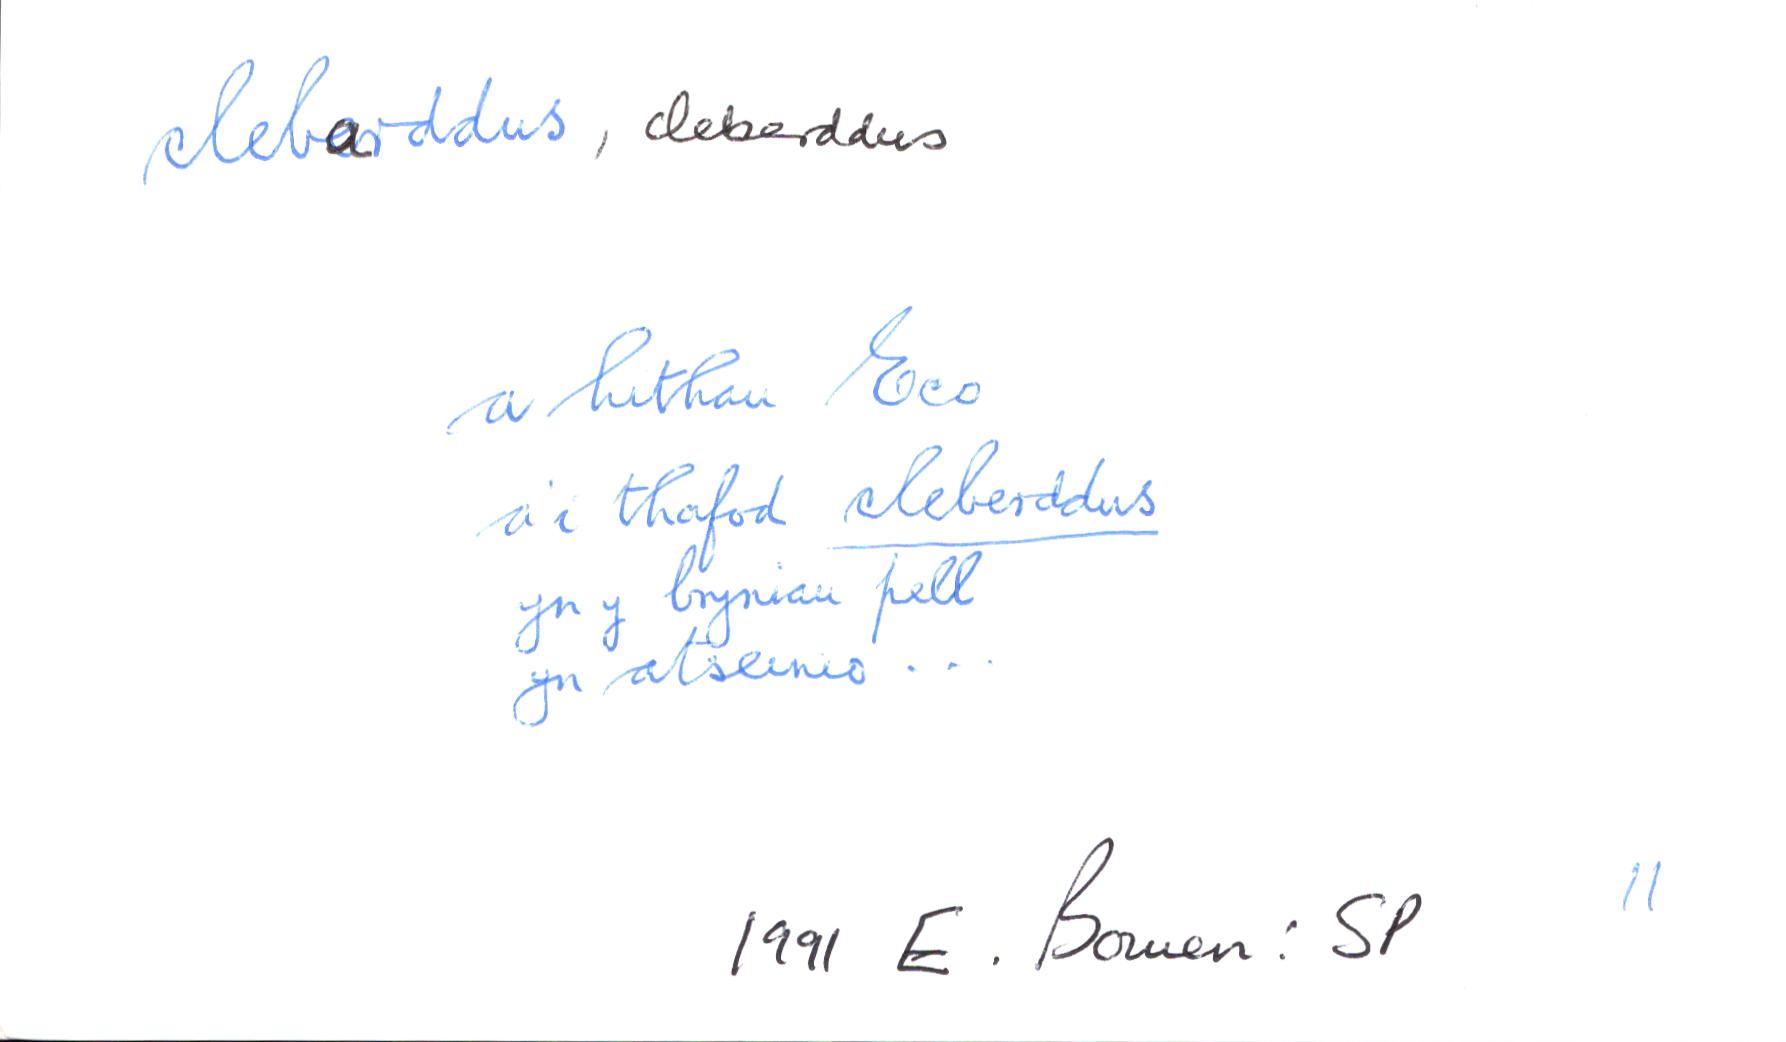 clebarddus, cleberddus
a hithau Eco
a'i thafod cleberddus
yn y bryniau pell
yn atseinio ...
1991 E. Bowen: SP 11